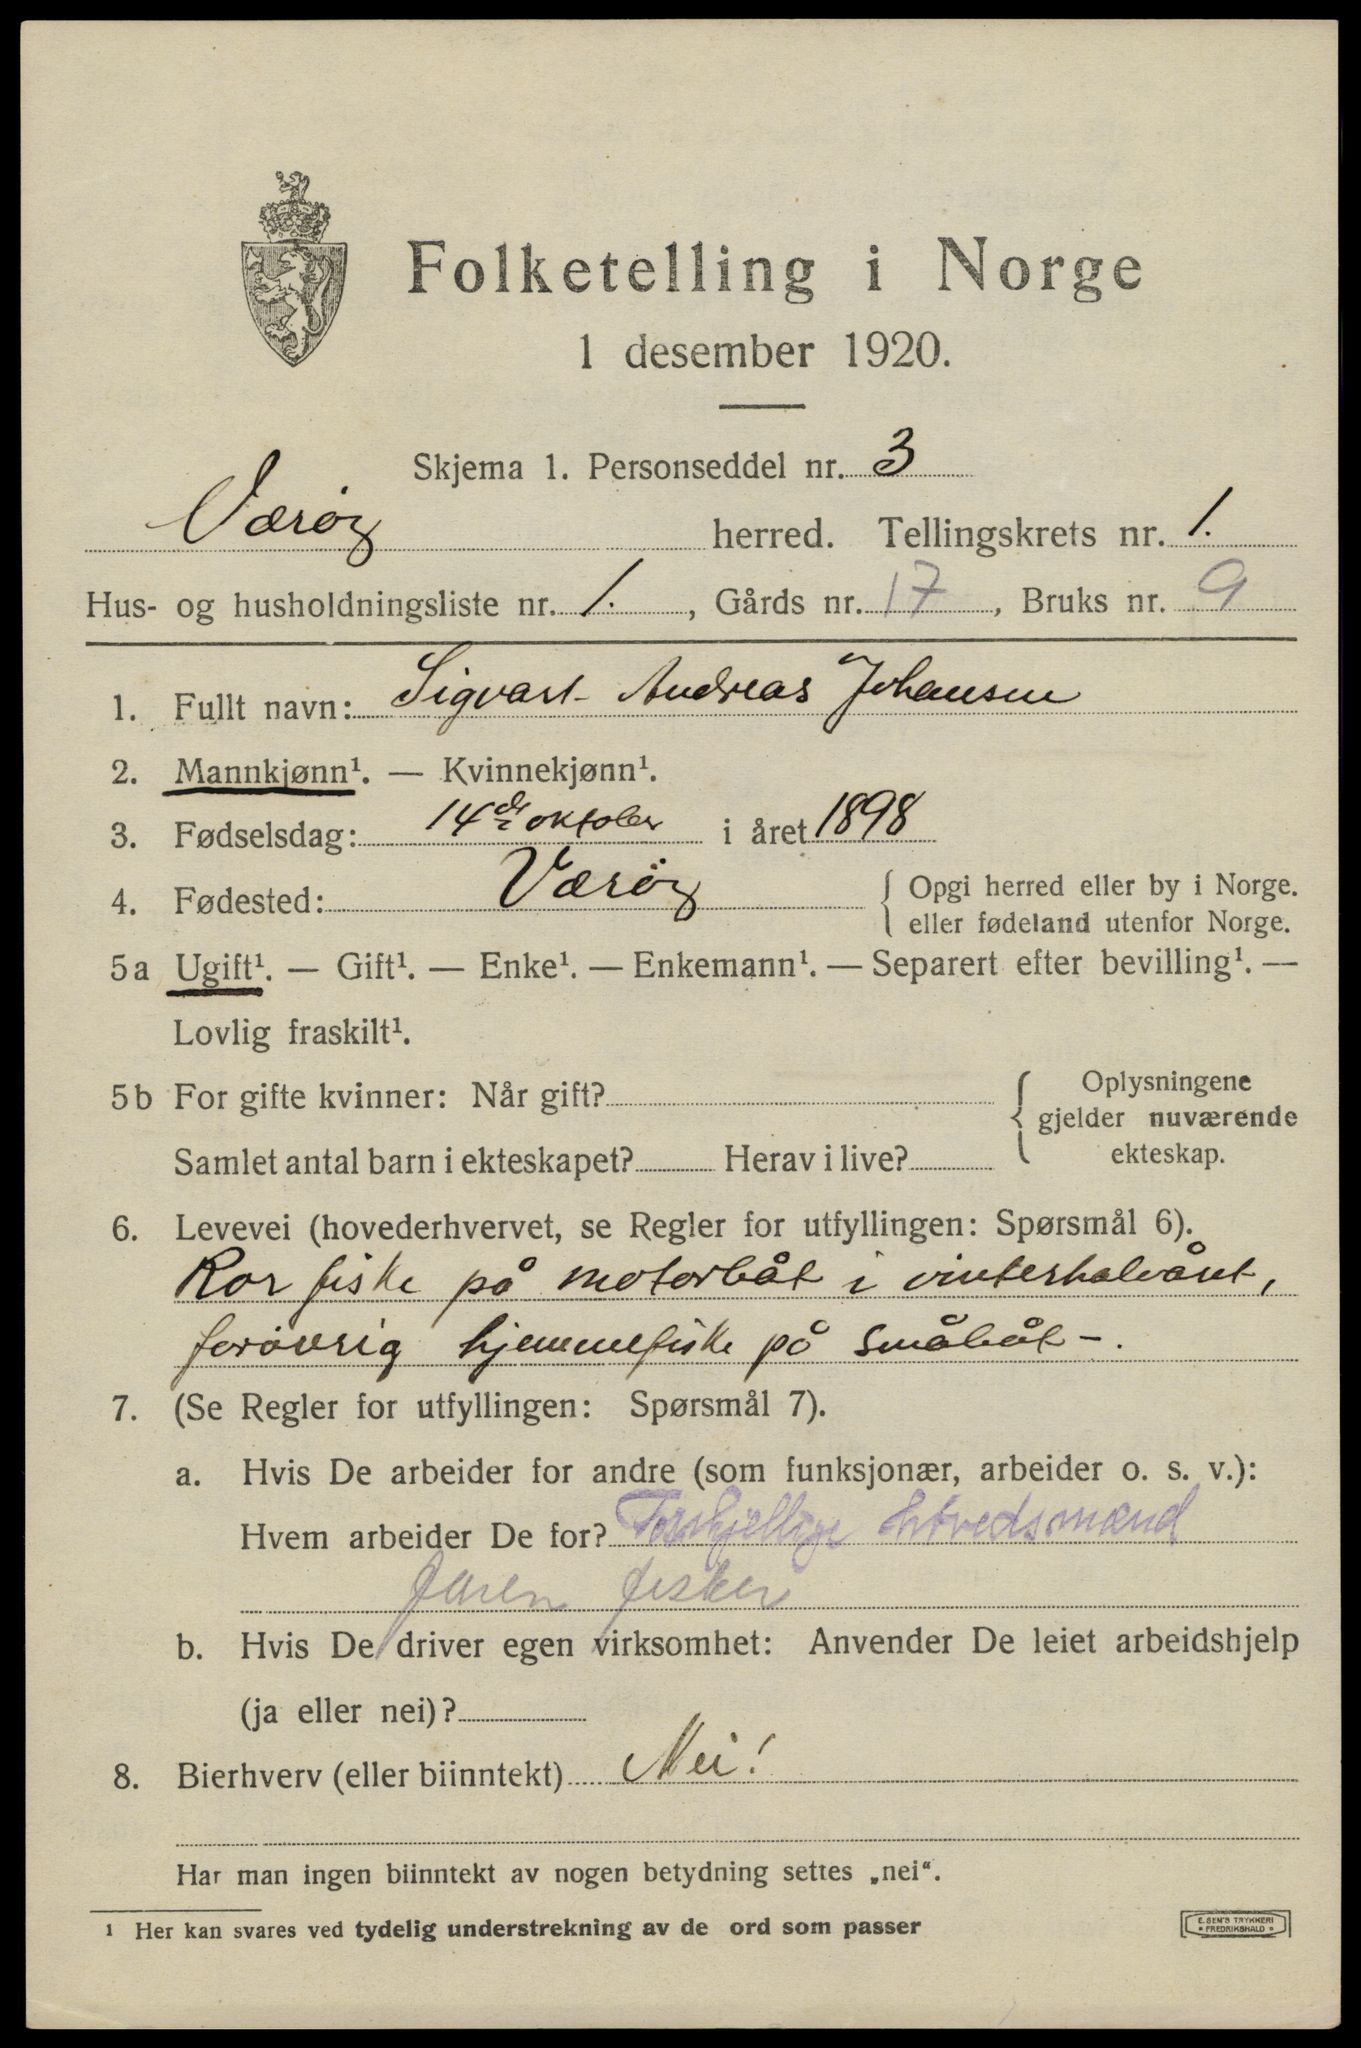 Folketelling i Norge
1 desember 1920.
Skjema 1. Personseddel nr. 3
Værøy herred. Tellingskrets nr. 1.
Hus- og husholdningsliste nr. 1. , Gårds nr. 17 , Bruks nr. 9
1. Fullt navn: Sigvart Andreas Johansen
2. Mannkjønn¹. — Kvinnekjønn¹.
3. Fødselsdag: 14de oktober i året 1898
4. Fødested: Værøy { Opgi herred eller by i Norge.
eller fødeland utenfor Norge.
5a Ugift¹. — Gift¹. — Enke¹. — Enkemann¹. — Separert efter bevilling¹. —
Lovlig fraskilt¹.
5b For gifte kvinner: Når gift? { Oplysningene
gjelder nuværende
Samlet antal barn i ekteskapet? Herav i live? ekteskap.
6. Levevei (hovederhvervet, se Regler for utfyllingen: Spørsmål 6).
Ror fiske på motorbåt i vinterhalvåret,
forøvrig hjemmefiske på småbåt -.
7. (Se Regler for utfyllingen: Spørsmål 7).
a. Hvis De arbeider for andre (som funksjonær, arbeider o. s. v.):
Hvem arbeider De for? Forskjellige Høvedsmænd
fisker
b. Hvis De driver egen virksomhet: Anvender De leiet arbeidshjelp
(ja eller nei)?
8. Bierhverv (eller biinntekt) Nei!
Har man ingen biinntekt av nogen betydning settes „nei“.
1 Her kan svares ved tydelig understrekning av de ord som passer
E. SEM'S TRYKKERI
* FREDRIKSHALD *